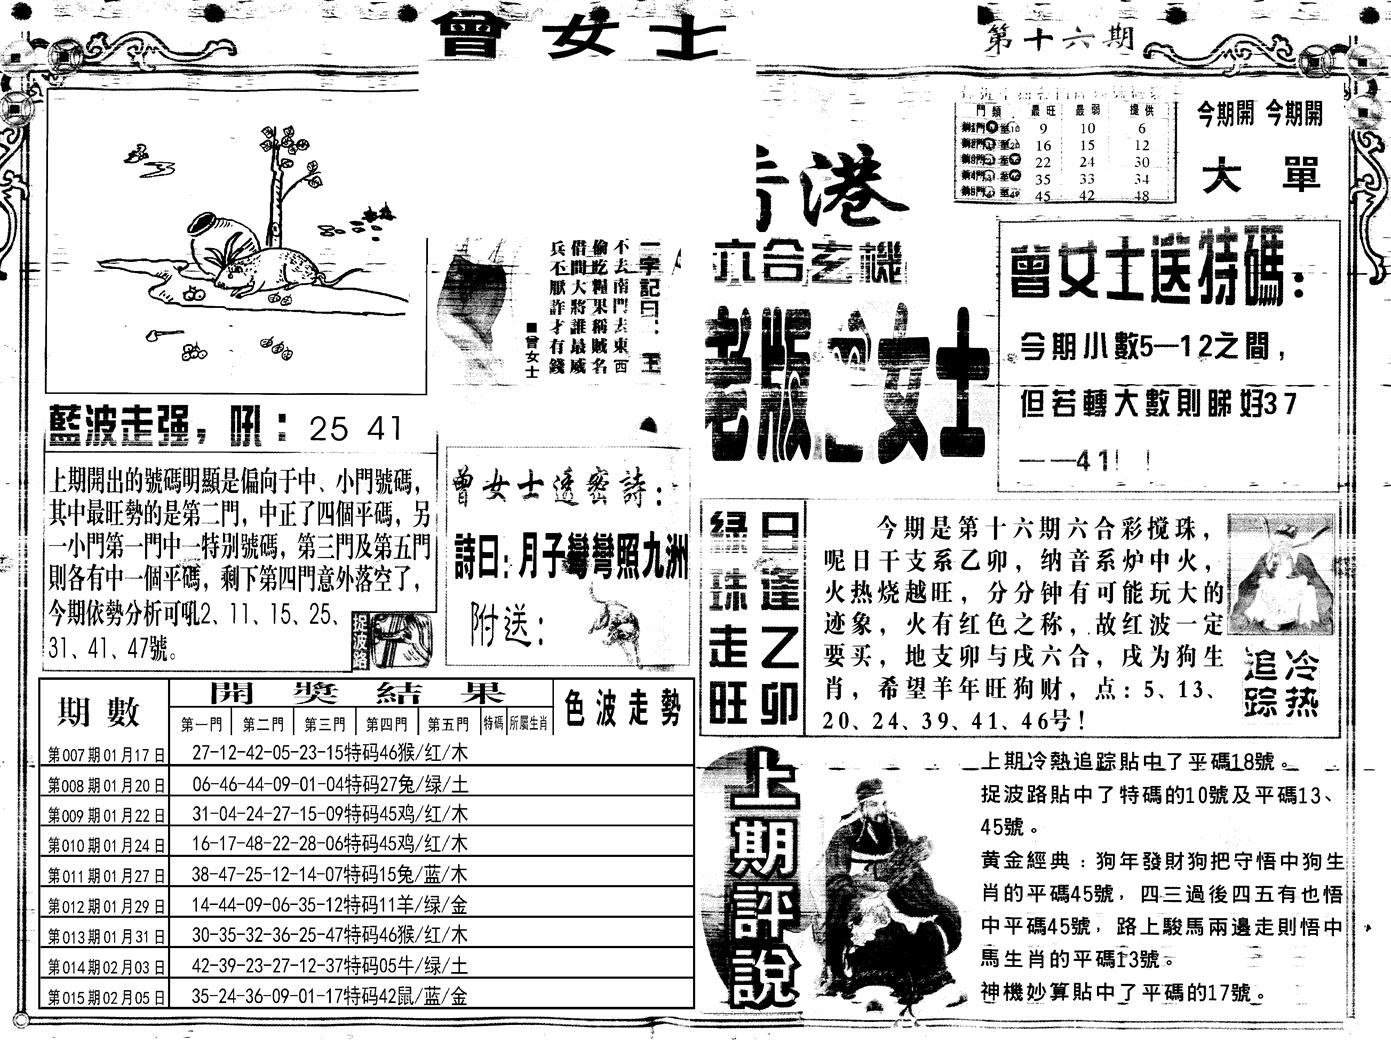 曾女士
第十六期
門類 最旺 最弱 提供
9 10 6
16 15 12
22 24 30
35 33 34
45 42 48
今期開 今期開
大 單
香港
六合玄機
老版曾女士
一字記曰：王
不去南門去東西
偷吃糧果稱賊名
借問大將誰最威
兵不厭詐才有錢
■曾女士
曾女士送特碼：
今期小數5—12之間，
但若轉大數則睇好37
——41！！
藍波走强，吼：25 41
上期開出的號碼明顯是偏向于中、小門號碼，
其中最旺勢的是第二門，中正了四個平碼，另
一小門第一門中一特別號碼，第三門及第五門
則各有中一個平碼，剩下第四門意外落空了，
今期依勢分析可吼2、11、15、25、
31、41、47號。
捉波路
曾女士透密詩：
詩曰：月子彎彎照九洲
附送：
口逢乙卯
绿珠走旺
今期是第十六期六合彩搅珠，
呢日干支系乙卯，纳音系炉中火，
火热烧越旺，分分钟有可能玩大的
迹象，火有红色之称，故红波一定
要买，地支卯与戌六合，戌为狗生
肖，希望羊年旺狗财，点：5、13、
20、24、39、41、46号！
冷热追踪
期數 開獎結果 色波走勢
第一門 第二門 第三門 第四門 第五門 特碼 所屬生肖
第007期01月17日 27-12-42-05-23-15特码46猴/红/木
第008期01月20日 06-46-44-09-01-04特码27兔/绿/土
第009期01月22日 31-04-24-27-15-09特码45鸡/红/木
第010期01月24日 16-17-48-22-28-06特码45鸡/红/木
第011期01月27日 38-47-25-12-14-07特码15兔/蓝/木
第012期01月29日 14-44-09-06-35-12特码11羊/绿/金
第013期01月31日 30-35-32-36-25-47特码46猴/红/木
第014期02月03日 42-39-23-27-12-37特码05牛/绿/土
第015期02月05日 35-24-36-09-01-17特码42鼠/蓝/金
上期評說
上期冷熱追踪貼中了平碼18號。
捉波路貼中了特碼的10號及平碼13、
45號。
黄金經典：狗年發財狗把守悟中狗生
肖的平碼45號，四三過後四五有也悟
中平碼45號，路上駿馬兩邊走則悟中
馬生肖的平碼13號。
神機妙算貼中了平碼的17號。